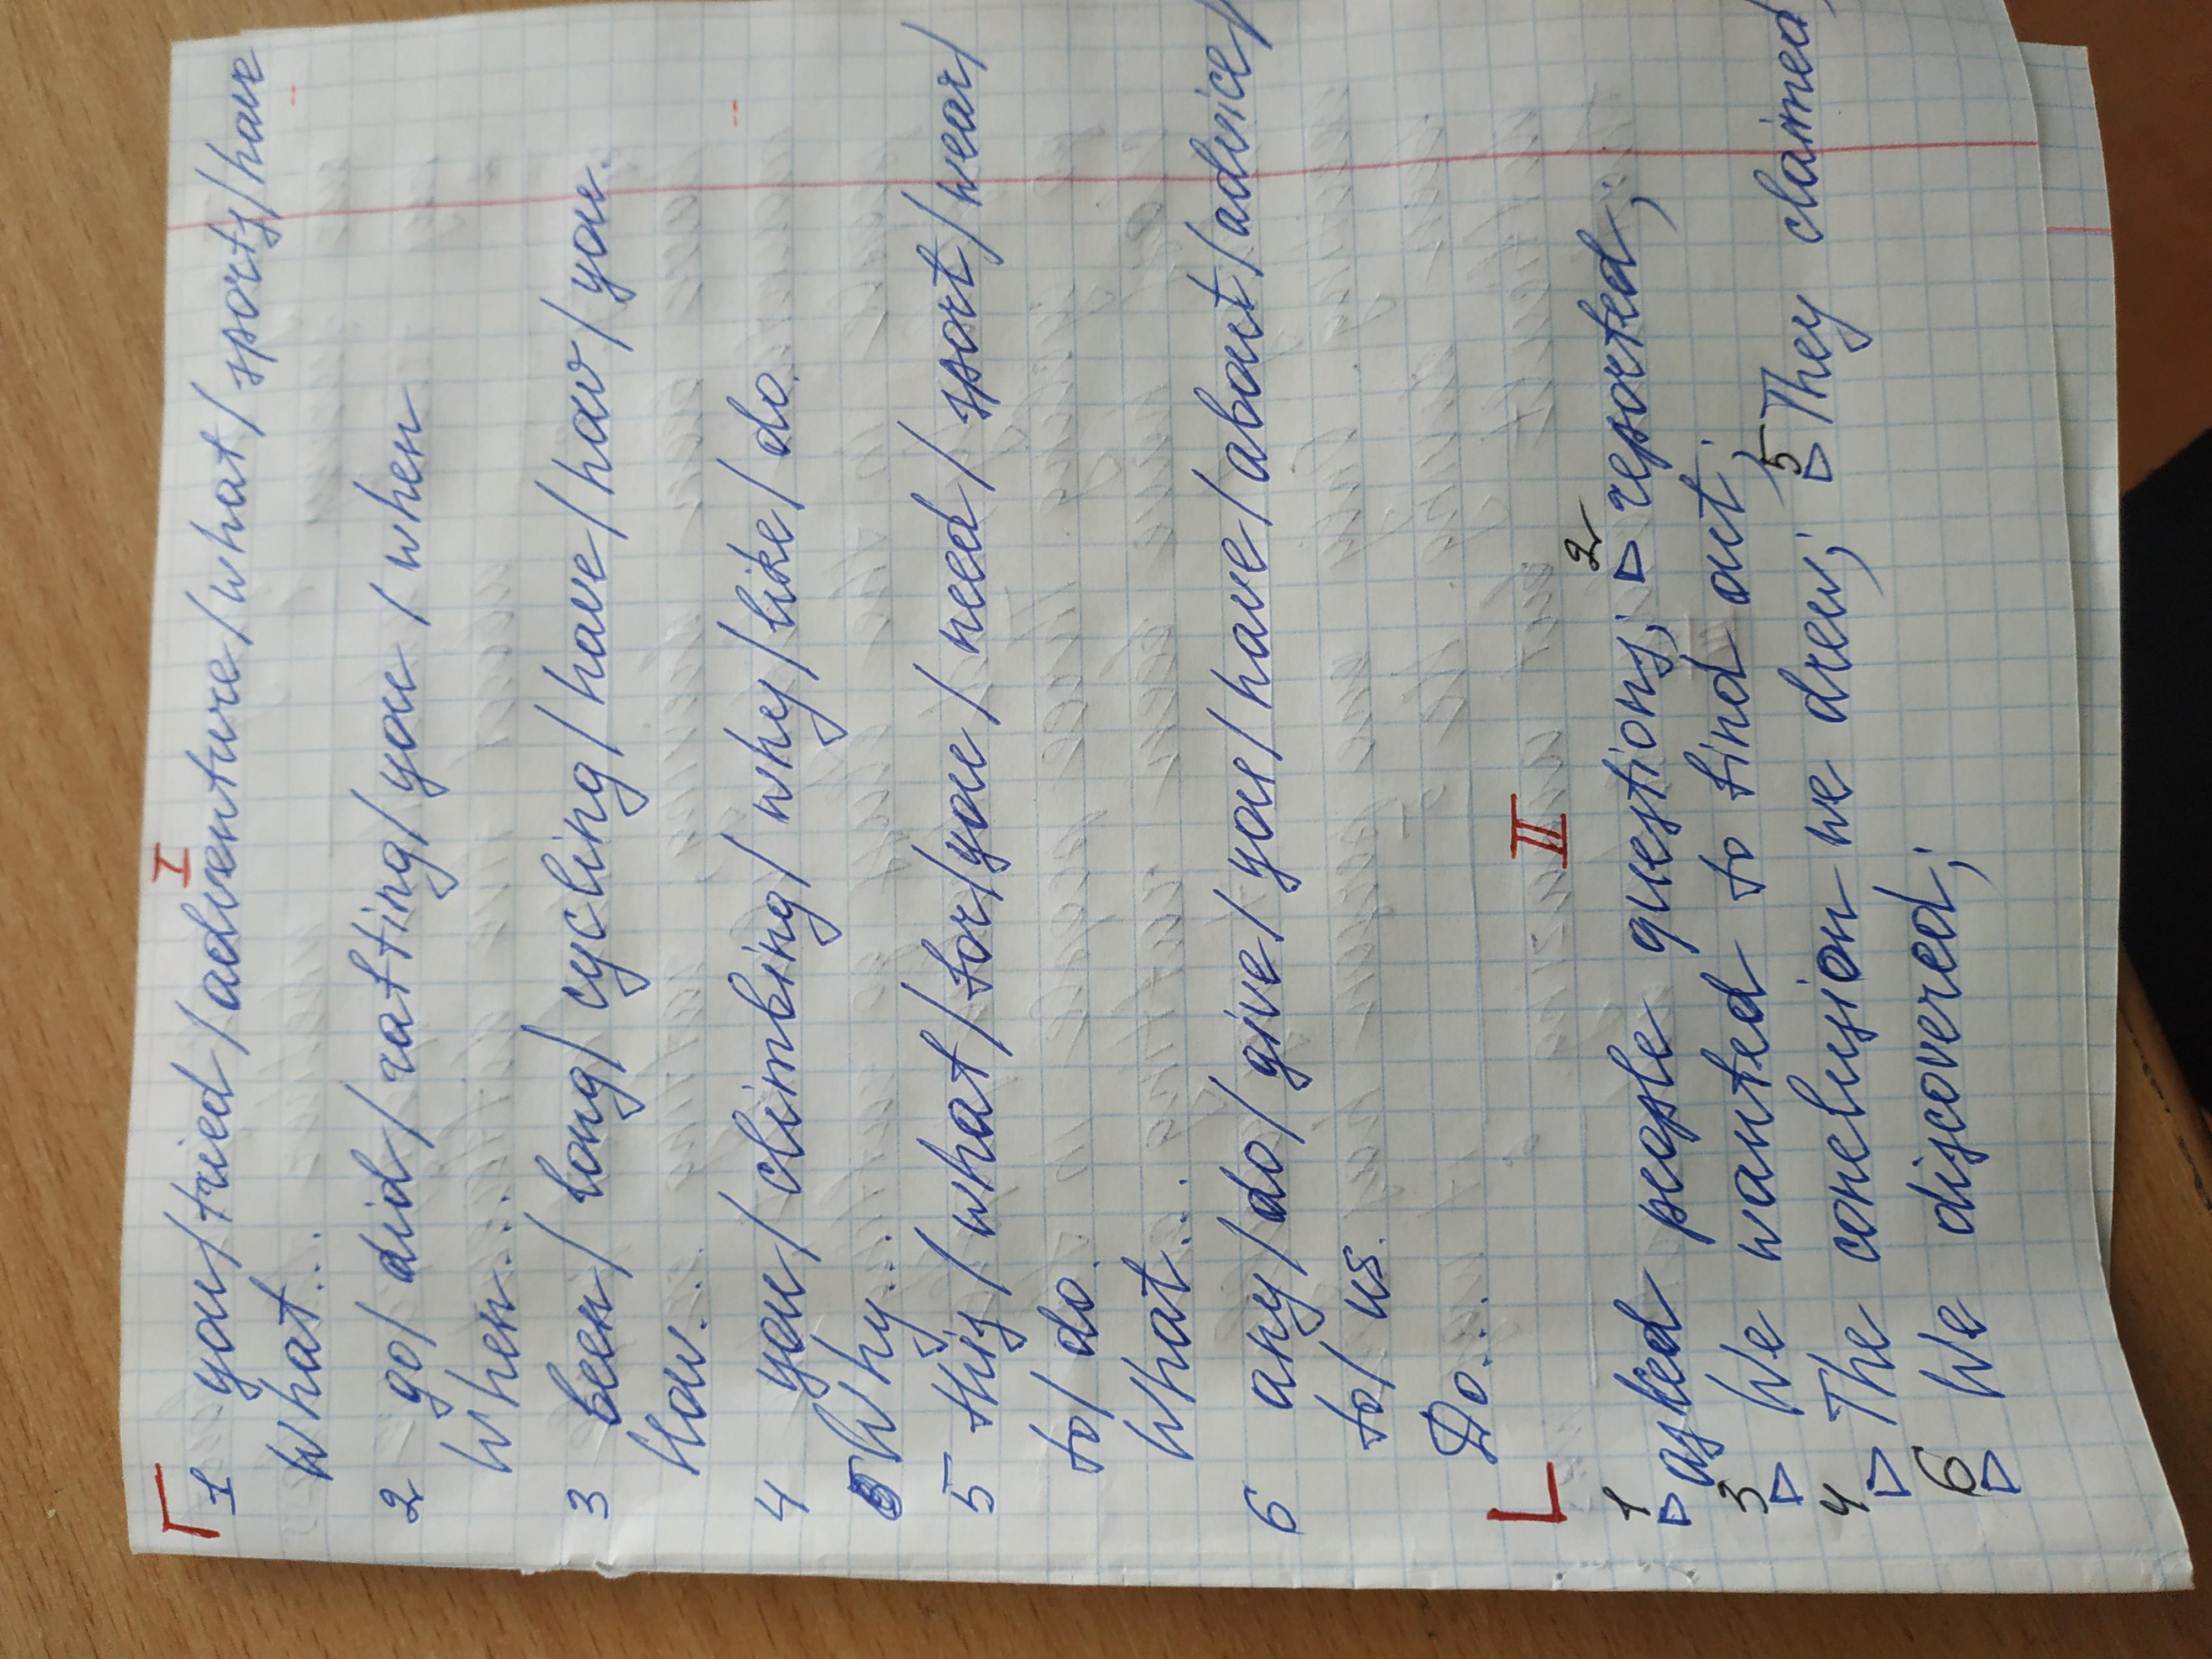 I
1 you/tried/adventure/what/sports/have
What...
2 go/did/rafting/you/when
When...
3 been/long/cycling/have/how/you.
How.
4 you/climbing/why/like/do.
Why...
5 this/what/for/you/need/sport/wear/
to/do.
What...
6 any/do/give/you/have/about/advice/
to/us.
Do...
II
1 asked people questions; 2 reported;
3 We wanted to find out;
4 The conclusion we drew; 5 They claimed;
6 We discovered;